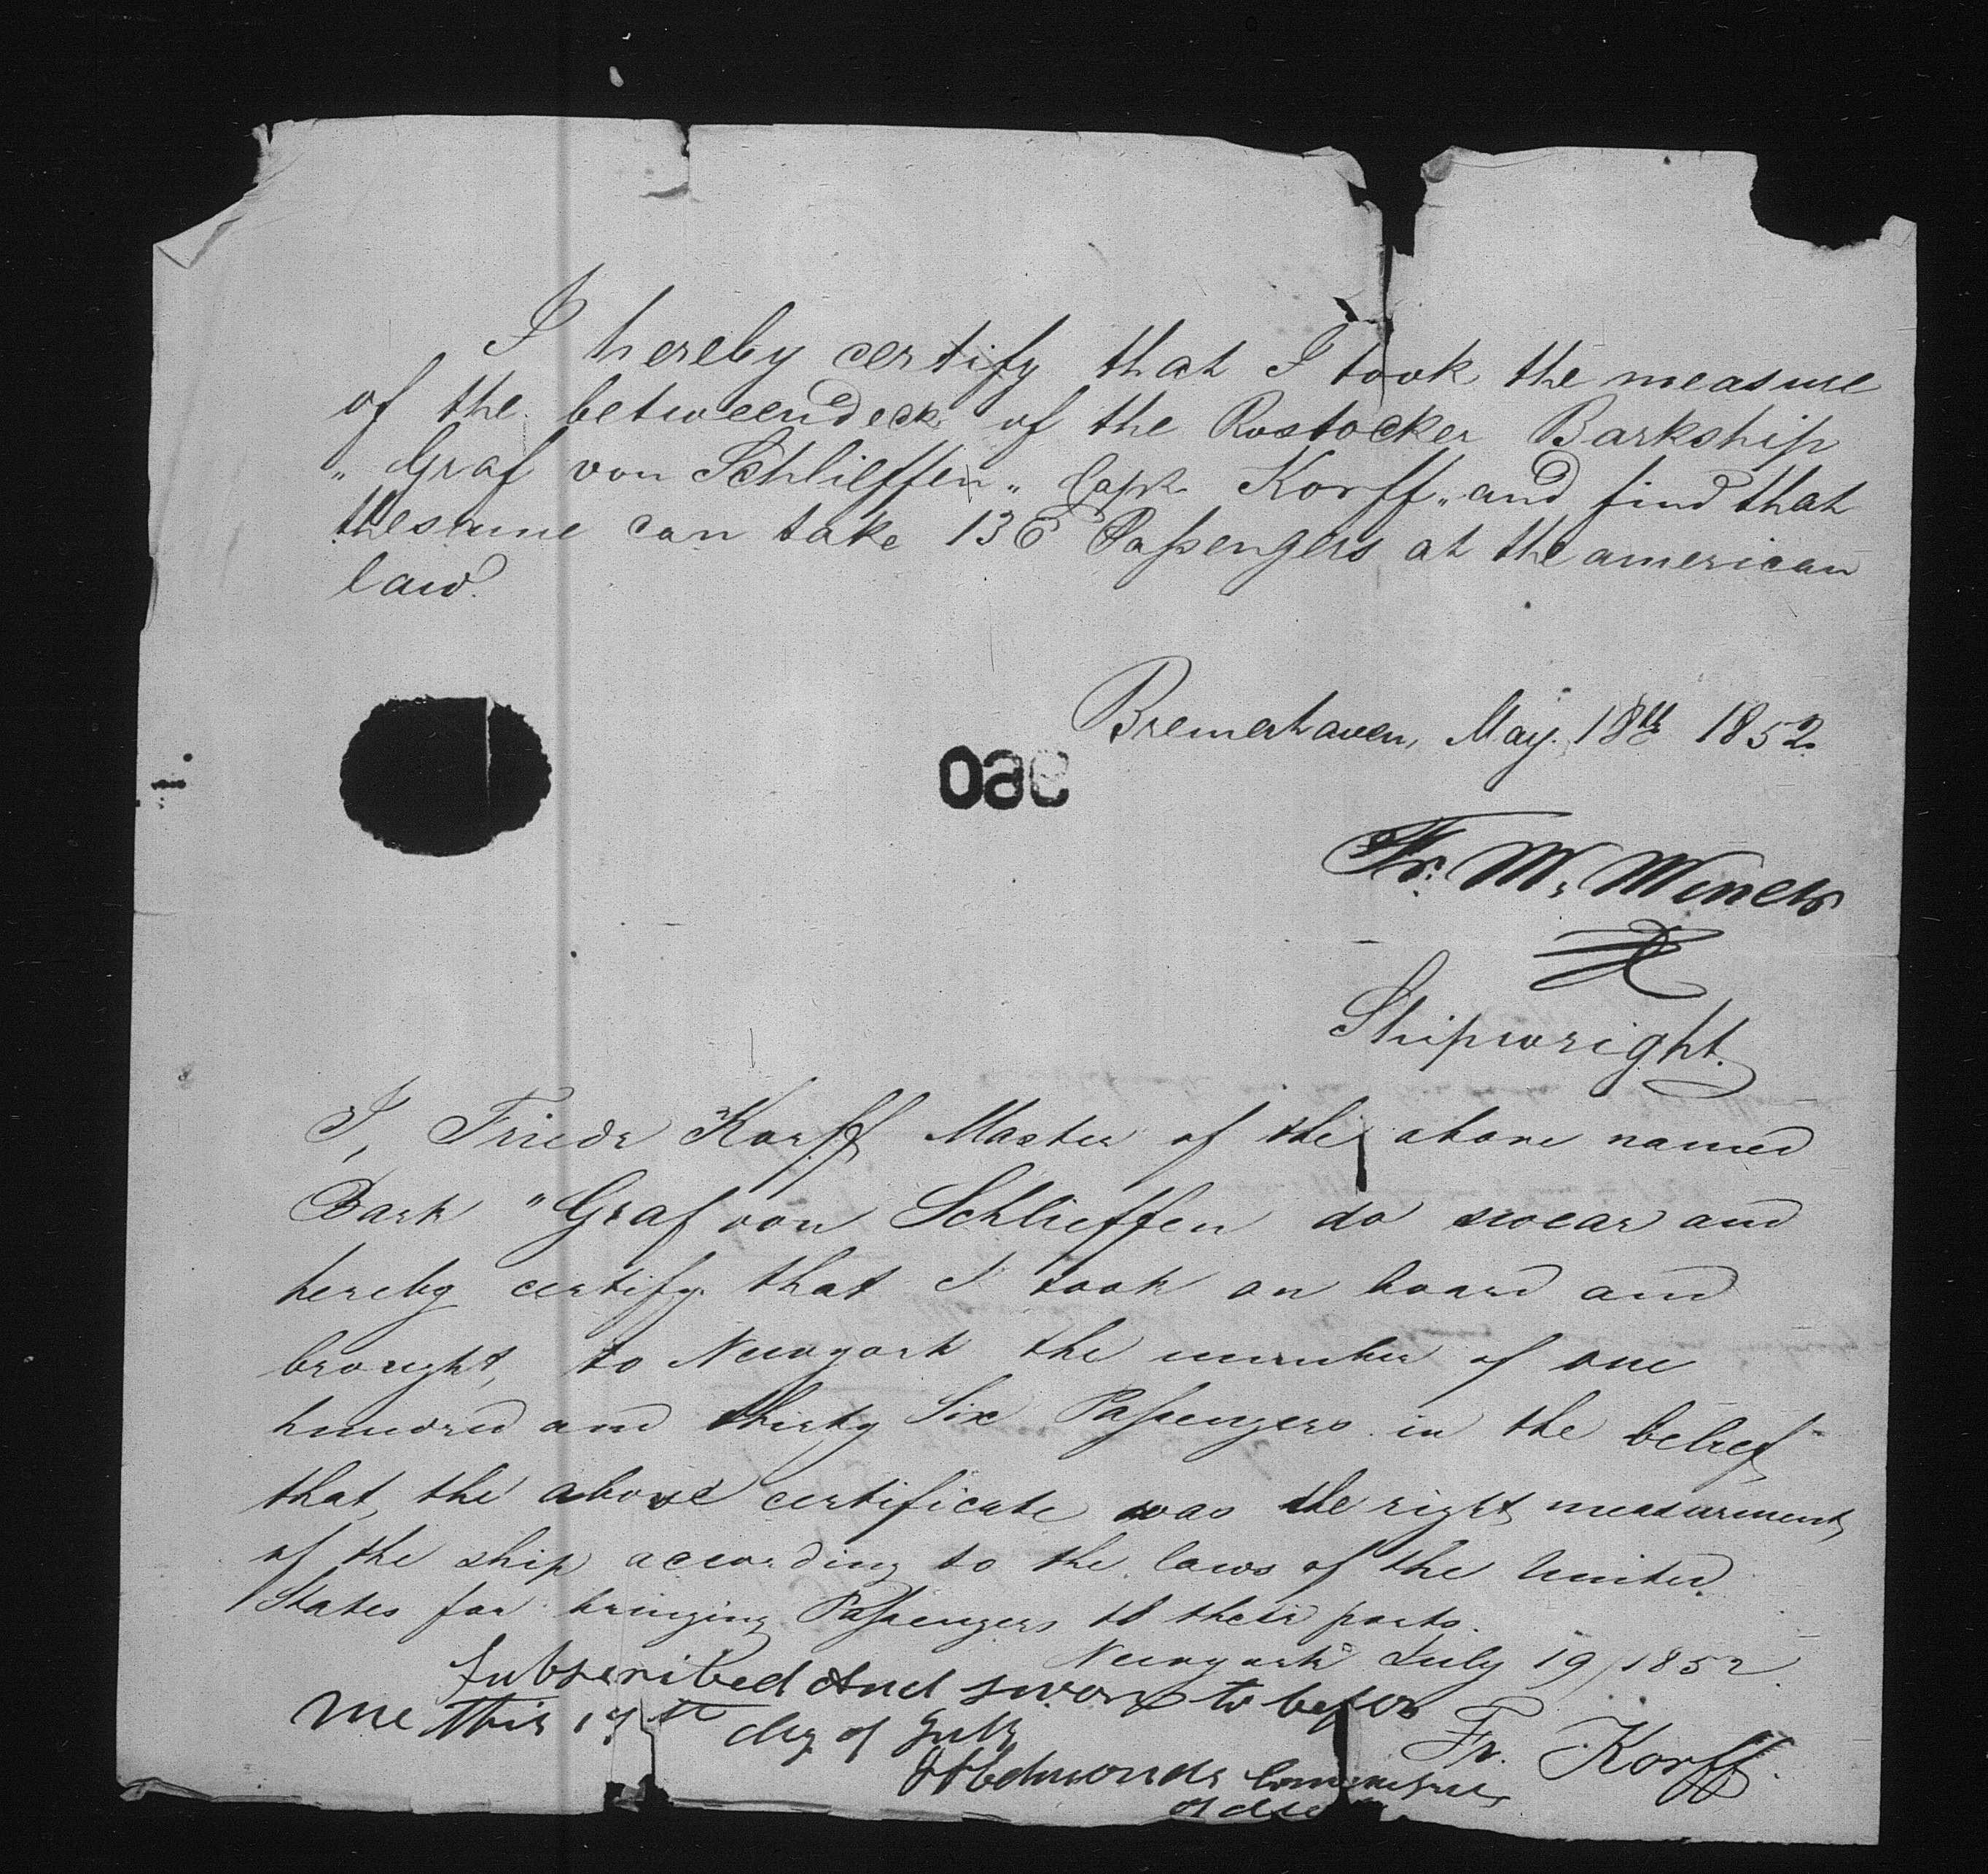 I hereby certify that I took the measure
of the betweendeck of the Rostocker Barkship
„Graf von Schlieffen„ Capt. Korff„ and find that
thesame can take 136 Passengers at the american
law.
Bremerhaven, May. 18th 1852.
960
Fr. W. Wencke
Shipwright.
I, Friedr Korff Master of the above named
Bark "Graf von Schlieffen do swear and
hereby certify that I took on board and
brought, to Newyork the number of one
hundred and thirty Six Passengers in the belief
that, the above certificate was the right measurement
of the ship according to the laws of the United
States for bringing Passengers to their ports.
Newyork July 19/1852
Subscribed and sworn to before
me this 19th day of July
Fr. Korff.
Edmonds Commissioner
of